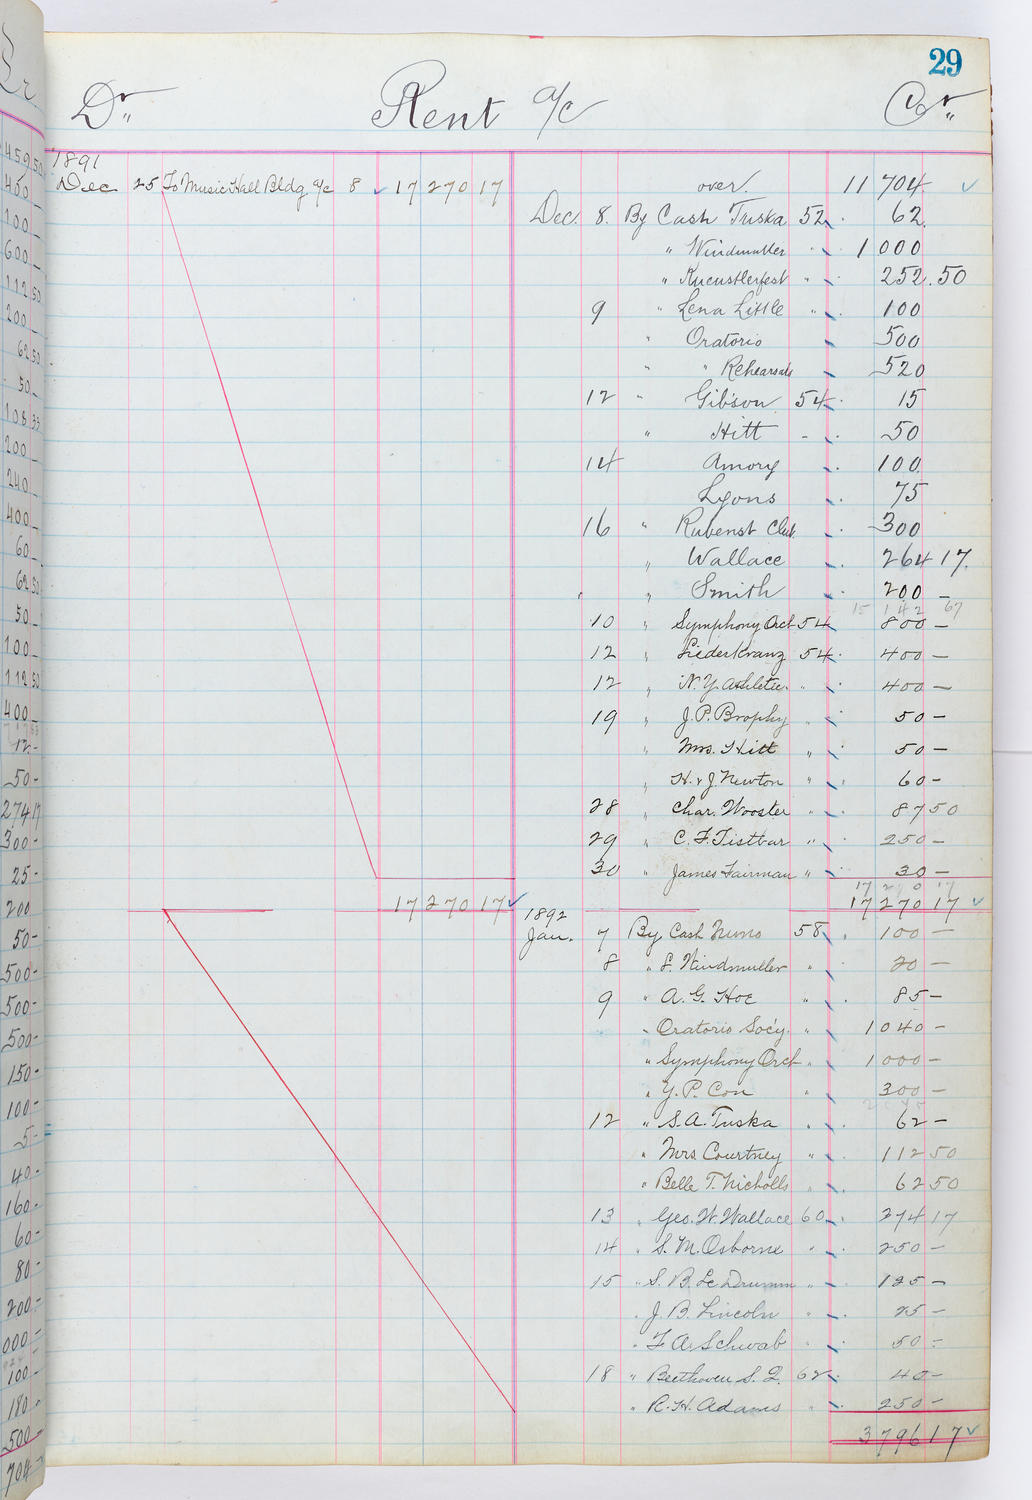 29
Dr. Rent a/c Cr.
1891
Dec 25 To Music Hall Bldg a/c 8 17 270 17
over. 11 704
Dec. 8. By Cash Tuska 52 62
" Windmuller " 1 000
" Kuenstlerfest " 252.50
9 " Lena Little " 100
" Oratorio 500
" " Rehearsals 520
12 " Gibson 54 15
" Hitt - 50
14 Amory 100
Lyons 75
16 " Rubenst Club 300
" Wallace 264 17
" Smith 200 –
15 142 67
10 " Symphony Orch 54 800 –
12 " Liederkranz 54 400 –
12 " N.Y. Athletic " 400 –
19 " J.P. Brophy " 50 –
" Mrs. Hitt " 50 –
" H. & J. Newton " 60 –
28 " Chas. Wooster " 87 50
29 " C. F. " 250 –
30 " James Fairman " 30 –
17 270 17
17 270 17 17 270 17
1892
Jan. 7 By Cash Nuno 58 100 –
8 " L. Windmuller " 20 –
9 " A. G. Hoe " 85 –
" Oratorio Soc'y. " 1040 –
" Symphony Orch " 1 000 –
" Y. P. Con " 300 –
12 " S. A. Tuska " 62 –
" Mrs Courtney " 112 50
" Belle T. Nicholls " 62 50
13 " Geo. W. Wallace 60 274 17
14 " S. M. Osborne " 250 –
15 " S. B. Le Drumm " 125 –
" J. B. Lincoln " 25 –
" F. A. Schwab " 50 –
18 " Beethoven S. Q. 62 40 –
" R. H. Adams " 250 –
3 796 17